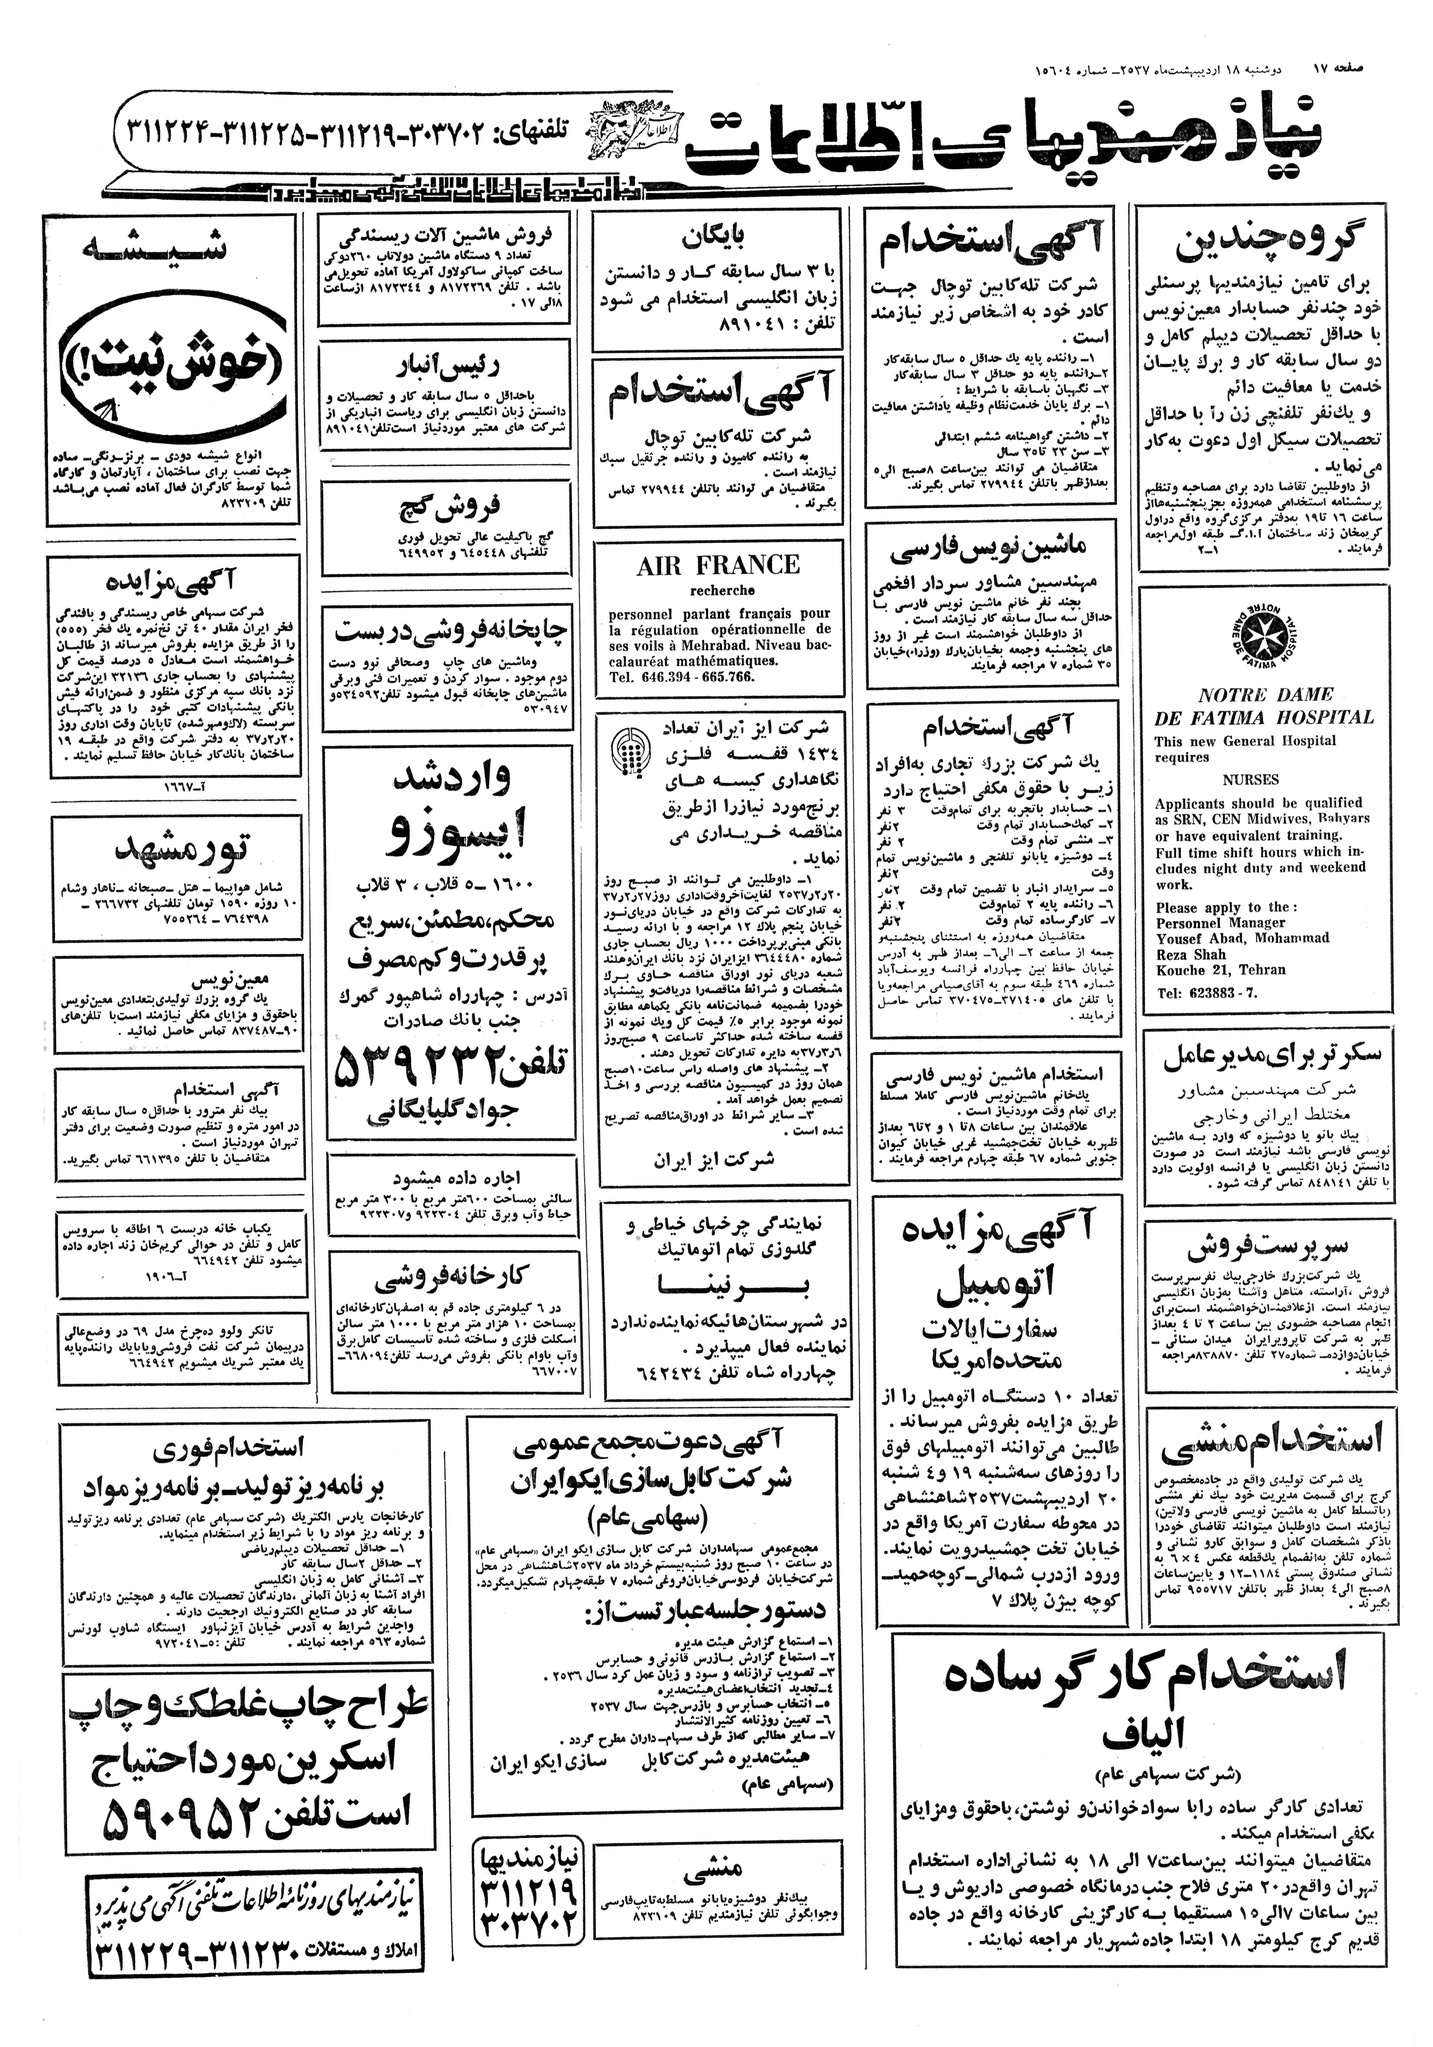 صفحه ۱۷
دوشنبه ۱۸ اردیبهشت‌ماه ۲۵۳۷ـ شماره ۱۵۶۰۴
نیازمندیهای اطلاعات
اطلاعات
تلفنهای: ۳۰۳۷۰۲-۳۱۱۲۱۹-۳۱۱۲۲۵-۳۱۱۲۲۴
نیازمندیهای اطلاعات تلفنی آگهی میپذیرد
گروه چندین
برای تامین نیازمندیها پرسنلی
خود چندنفر حسابدار معین‌نویس
با حداقل تحصیلات دیپلم کامل و
دو سال سابقه کار و برك پایــان
خدمت یا معافیت دائم
و یك‌نفر تلفنچی زن را با حداقل
تحصیلات سیکل اول دعوت به‌کار
می‌نماید .
از داوطلبین تقاضا دارد برای مصاحبه وتنظیم
پرسشنامه استخدامی همه‌روزه بجزپنجشنبه‌هااز
ساعت ۱۶ تا ۱۹ به‌دفتر مرکزی‌گروه واقع دراول
کریمخان زند ساختمان آ.ا.گ- طبقه اول‌مراجعه
فرمایند . ۱-۲
NOTRE DAME DE FATIMA HOSPITAL
NOTRE DAME
DE FATIMA HOSPITAL
This new General Hospital
requires
NURSES
Applicants should be qualified
as SRN, CEN Midwives, Bahyars
or have equivalent training.
Full time shift hours which in-
cludes night duty and weekend
work.
Please apply to the :
Personnel Manager
Yousef Abad, Mohammad
Reza Shah
Kouche 21, Tehran
Tel: 623883 - 7.
سکرتر برای مدیرعامل
شرکت مهندسین مشاور
مختلط ایرانی وخارجی
بیك بانو یا دوشیزه که وارد به ماشین
نویسی فارسی باشد نیازمند است در صورت
دانستن زبان انگلیسی یا فرانسه اولویت دارد
با تلفن ۸۴۸۱۴۱ تماس گرفته شود .
سرپرست فروش
یك شرکت‌بزرك خارجی‌بیك نفرسرپرست
فروش ،آراسته، متاهل وآشنا به‌زبان انگلیسی
نیازمند است. ازعلاقمندان‌خواهشمند است‌برای
انجام مصاحبه حضوری بین ساعت ۲ تا ۴ بعداز
ظهر به شرکت تاپرویرایران میدان سنائی –
خیابان‌دوازده- شماره۲۷ تلفن ۸۳۸۸۷۰مراجعه
فرمایند .
استخدام منشی
یك شرکت تولیدی واقع در جاده‌مخصوص
کرج برای قسمت مدیریت خود بیك نفر منشی
(باتسلط کامل به ماشین نویسی فارسی ولاتین)
نیازمند است داوطلبان میتوانند تقاضای خودرا
باذکر مشخصات کامل و سوابق کارو نشانی و
شماره تلفن به‌انضمام یك‌قطعه عکس ۴ × ۶ به
نشانی صندوق پستی ۱۱۸۴-۱۲ و یابین‌ساعات
۸صبح الی۴ بعداز ظهر باتلفن ۹۵۵۷۱۷ تماس
بگیرند .
آگهی استخدام
شرکت تله‌کابین توچال جهت
کادر خود به اشخاص زیر نیازمند
است .
۱ــ راننده پایه یك حداقل ۵ سال سابقه‌کار
۲ــراننده پایه دو حداقل ۳ سال سابقه‌کار
۳ــ نگهبان باسابقه با شرایط :
۱ــ برك پایان خدمت‌نظام وظیفه یاداشتن معافیت
دائم .
۲ــ داشتن گواهینامه ششم ابتدائی
۳ــ سن ۲۳ تا۳۵ سال
متقاضیان می توانند بین‌ساعت ۸صبح الی۵
بعدازظهر باتلفن ۲۷۹۹۴۴ تماس بگیرند.
ماشین نویس فارسی
مهندسین مشاور سردار افخمی
بچند نفر خانم ماشین نویس فارسی بــا
حداقل سه سال سابقه کار نیازمند است .
از داوطلبان خواهشمند است غیر از روز
های پنجشنبه وجمعه بخیابان‌پارك (وزراء)خیابان
۳۵ شماره ۷ مراجعه فرمایند
آگهی استخدام
یك شرکت بزرك تجاری به‌افراد
زیر با حقوق مکفی احتیاج دارد
۱ــ حسابدار باتجربه برای تمام‌وقت ۳ نفر
۲ــ کمك‌حسابدار تمام وقت ۲نفر
۳ــ منشی تمام وقت ۲ نفر
۴ــ دوشیزه یابانو تلفنچی و ماشین‌نویس تمام
وقت ۲نفر
۵ــ سرایدار انبار با تضمین تمام وقت ۲نفر
۶ــ راننده پایه ۲ تمام‌وقت ۲ نفر
۷ــ کارگرساده تمام وقت ۲نفر
متقاضیان همه‌روزه به استثنای پنجشنبه‌و
جمعه از ساعت ۲ــ الی۶ــ بعداز ظهر به آدرس
خیابان حافظ بین چهارراه فرانسه ویوسف‌آباد
شماره ۴۶۹ طبقه سوم به آقای‌صیامی مراجعه‌ویا
با تلفن های ۳۷۱۴۰۵-۳۷۰۴۷۵ تماس حاصل
فرمایند .
استخدام ماشین نویس فارسی
یك‌خانم ماشین‌نویس فارسی کاملا مسلط
برای تمام وقت موردنیاز است.
علاقمندان بین ساعات ۸تا ۱ و ۲تا۶ بعداز
ظهربه خیابان تخت‌جمشید غربی خیابان کیوان
جنوبی شماره ۶۷ طبقه چهارم مراجعه فرمایند .
آگهی مزایده
اتومبیل
سفارت ایالات
متحده‌امریکا
تعداد ۱۰ دستگاه اتومبیل را از
طریق مزایده بفروش میرساند .
طالبین می‌توانند اتومبیلهای فوق
را روزهای سه‌شنبه ۱۹ و۴ شنبه
۲۰ اردیبهشت۲۵۳۷شاهنشاهی
در محوطه سفارت آمریکا واقع در
خیابان تخت جمشیدرویت نمایند.
ورود ازدرب شمالی-کوچه‌حمید-
کوچه بیژن پلاك ۷
استخدام کارگر ساده
الیاف
(شرکت سهامی عام)
تعدادی کارگر ساده رابا سوادخواندن‌و نوشتن، باحقوق ومزایای
مکفی استخدام میکند .
متقاضیان میتوانند بین‌ساعت۷ الی ۱۸ به نشانی‌اداره استخدام
تهران واقع‌در۲۰ متری فلاح جنب‌درمانگاه خصوصی داریوش و یــا
بین ساعات ۷الی۱۵ مستقیما به کارگزینی کارخانه واقع در جاده
قدیم کرج کیلومتر ۱۸ ابتدا جاده‌شهریار مراجعه نمایند .
بایگان
با ۳ سال سابقه کار و دانستن
زبان انگلیسی استخدام می شود
تلفن : ۸۹۱۰۴۱
آگهی استخدام
شرکت تله‌کابین توچال
به راننده کامیون و راننده جرثقیل سبك
نیازمند است .
متقاضیان می توانند باتلفن ۲۷۹۹۴۴ تماس
بگیرند .
AIR FRANCE
recherche
personnel parlant français pour
la régulation opérationnelle de
ses voils à Mehrabad. Niveau bac-
calauréat mathématiques.
Tel. 646.394 - 665.766.
شرکت ایز ایران تعداد
۱۴۳۴ قفسه فلزی
نگاهداری کیسه های
برنج‌مورد نیازرا ازطریق
مناقصه خریــداری می
نماید .
۱ــ داوطلبین می توانند از صبح روز
۲۰ر۲ر۲۵۳۷ لغایت‌آخروقت‌اداری روز۲۷ر۲ر۳۷
به تدارکات شرکت واقع در خیابان دریای‌نور
خیابان پنجم پلاك ۱۲ مراجعه و با ارائه رسیــد
بانکی مبنی‌برپرداخت ۱۰۰۰ ریال بحساب جاری
شماره ۳۶۴۴۴۸۰ ایزایران نزد بانك ایران‌وهلند
شعبه دریای نور اوراق مناقصه حاوی بــرك
مشخصات و شرائط مناقصه‌را دریافت‌و پیشنهاد
خودرا بضمیمه ضمانت‌نامه بانکی یکماهه مطابق
نمونه موجود برابر ۵٪ قیمت کل ویك نمونه از
قفسه ساخته شده حداکثر تاساعت ۹ صبح‌روز
۶ر۳ر۳۷به دایره تدارکات تحویل دهند .
۲ــ پیشنهاد های واصله راس ساعت۱۰صبح
همان روز در کمیسیون مناقصه بررسی و اخذ
تصمیم بعمل خواهد آمد .
۳ــ سایر شرائط در اوراق‌مناقصه تصریح
شده است .
شرکت ایز ایران
نمایندگی چرخهای خیاطی و
گلدوزی تمام اتوماتیك
بـــرنینا
در شهرستان‌هائیکه‌نماینده ندارد
نماینده فعال میپذیرد .
چهارراه شاه تلفن ۶۴۲۴۳۴
فروش ماشین آلات ریسندگی
تعداد ۹ دستگاه ماشین دولاتاب ۲۶۰دوکی
ساخت کمپانی ساکولاول آمریکا آماده تحویل‌می
باشد . تلفن ۸۱۷۲۲۶۹ و ۸۱۷۲۳۴۴ ازساعت
۸الی ۱۷ .
رئیس انبار
باحداقل ۵ سال سابقه کار و تحصیلات و
دانستن زبان انگلیسی برای ریاست انباریکی از
شرکت های معتبر موردنیاز است‌تلفن۸۹۱۰۴۱
فروش گچ
گچ باکیفیت عالی تحویل فوری
تلفنهای ۶۴۵۴۴۸ و ۶۴۹۹۵۲
چاپخانه‌فروشی‌دربست
وماشین های چاپ وصحافی نوو دست
دوم موجود . سوار کردن و تعمیرات فنی وبرقی
ماشین‌های چاپخانه قبول میشود تلفن۵۳۴۵۹۲و
۵۳۰۹۴۷
وارد شد
ایسوزو
۱۶۰۰ –۵ قلاب ، ۳ قلاب
محکم، مطمئن، سریع
پر قدرت و کم مصرف
آدرس : چهارراه شاهپور گمرك
جنب بانك صادرات
تلفن ۵۳۹۲۳۲
جواد گلپایگانی
اجاره داده میشود
سالنی بمساحت ۶۰۰متر مربع با ۳۰۰ متر مربع
حیاط وآب وبرق تلفن ۹۲۲۳۰۴ و۹۲۲۳۰۷
کارخانه فروشی
در ۶ کیلومتری جاده قم به اصفهان‌کارخانه‌ای
بمساحت ۱۰ هزار متر مربع با ۱۰۰۰ متر سالن
اسکلت فلزی و ساخته شده تاسیسات کامل‌برق
وآب باوام بانکی بفروش می‌رسد تلفن۶۶۸۰۹۴-
۶۶۷۰۰۷
شیشه
(خوش نیت!)
انواع شیشه دودی – برنز–رنگی– ساده
جهت نصب برای ساختمان ، آپارتمان و کارگاه
شما توسط کارگران فعال آماده نصب می‌باشد
تلفن ۸۲۳۲۰۹
آگهی مزایده
شرکت سهامی خاص ریسندگی و بافندگی
فخر ایران مقدار ۴۰ تن نخ‌نمره یك فخر (۵۵۵)
را از طریق مزایده بفروش میرساند از طالبــان
خواهشمند است معــادل ۵ درصد قیمت کل
پیشنهادی را بحساب جاری ۳۲۱۳۶ این‌شرکت
نزد بانك سپه مرکزی منظور و ضمن‌ارائه فیش
بانکی پیشنهادات کتبی خود را در پاکتهای
سربسته (لاك‌ومهرشده) تاپایان وقت اداری روز
۲۰ر۲ر۳۷ به دفتر شرکت واقع در طبقه ۱۹
ساختمان بانك‌کار خیابان حافظ تسلیم نمایند .
آ-۱۶۶۷
تور مشهد
شامل هواپیما – هتل – صبحانه – ناهار وشام
۱۰ روزه ۱۵۹۰ تومان تلفنهای ۲۶۶۷۳۲ –
۷۶۴۳۹۸– ۷۵۵۲۶۴
معین‌نویس
یك گروه بزرك تولیدی‌بتعدادی معین‌نویس
باحقوق و مزایای مکفی نیازمند است‌با تلفن‌های
۹۰–۸۳۷۴۸۷ تماس حاصل نمائید .
آگهی استخدام
بیك نفر مترور با حداقل۵ سال سابقه کار
در امور متره و تنظیم صورت وضعیت برای دفتر
تهران موردنیاز است .
متقاضیان با تلفن ۶۶۱۳۹۵ تماس بگیرید.
یکباب خانه دربست ۶ اطاقه با سرویس
کامل و تلفن در حوالی کریم‌خان زند اجاره داده
میشود تلفن ۶۶۴۹۴۲
آ–۱۹۰۶
تانکر ولوو ده‌چرخ مدل ۶۹ در وضع‌عالی
درپیمان شرکت نفت فروشی‌ویابایك راننده‌پایه
یك معتبر شریك میشویم ۶۶۴۹۴۲
آگهی دعوت مجمع عمومی
شرکت کابل سازی ایکو ایران
(سهامی عام)
مجمع‌عمومی سهامداران شرکت کابل سازی ایکو ایران «سهامی عام»
در ساعت ۱۰ صبح روز شنبه‌بیستم خرداد ماه ۲۵۳۷شاهنشاهی در محل
شرکت‌خیابان فردوسی‌خیابان‌فروغی شماره ۷ طبقه‌چهارم تشکیل‌میگردد.
دستور جلسه عبارتست از:
۱ــ استماع گزارش هیئت مدیره
۲ــ استماع گزارش بــازرس قانونی و حسابرس
۳ــ تصویب ترازنامه و سود و زیان عمل کرد سال ۲۵۳۶ .
۴ــتجدید انتخاب‌اعضای‌هیئت‌مدیره
۵ــ انتخاب حسابرس و بازرس‌جهت سال ۲۵۳۷
۶ــ تعیین روزنامه کثیرالانتشار
۷ــ سایر مطالبی که‌از طرف سهام‌داران مطرح گردد .
هیئت‌مدیره شرکت‌کابل سازی ایکو ایران
(سهامی عام)
استخدام فوری
برنامه ریز تولید–برنامه ریز مواد
کارخانجات پارس الکتریك (شرکت سهامی عام) تعدادی برنامه ریزتولید
و برنامه ریز مواد را با شرایط زیر استخدام مینماید.
۱ــ حداقل تحصیلات دیپلم‌ریاضی
۲ــ حداقل ۲سال سابقه کار
۳ــ آشنائی کامل به زبان انگلیسی
افراد آشنا به زبان آلمانی ،دارندگان تحصیلات عالیه و همچنین دارندگان
سابقه کار در صنایع الکترونیك ارجحیت دارند .
واجدین شرایط به آدرس خیابان آیزنهاور ایستگاه شاوپ لورنس
شماره ۵۶۳ مراجعه نمایند . تلفن : ۵–۹۷۲۰۴۱
طراح چاپ غلطک و چاپ
اسکرین مورد احتیاج
است تلفن ۵۹۰۹۵۲
نیازمندیهای روزنامه اطلاعات تلفنی آگهی می پذیرد
املاك و مستغلات ۳۱۱۲۳۰–۳۱۱۲۲۹
نیازمندیها
۳۱۱۲۱۹
۳۰۳۷۰۲
منشی
بیك‌نفر دوشیزه‌یابانو مسلط‌به‌تایپ‌فارسی
وجوابگوئی تلفن نیازمندیم تلفن ۸۲۳۱۰۹